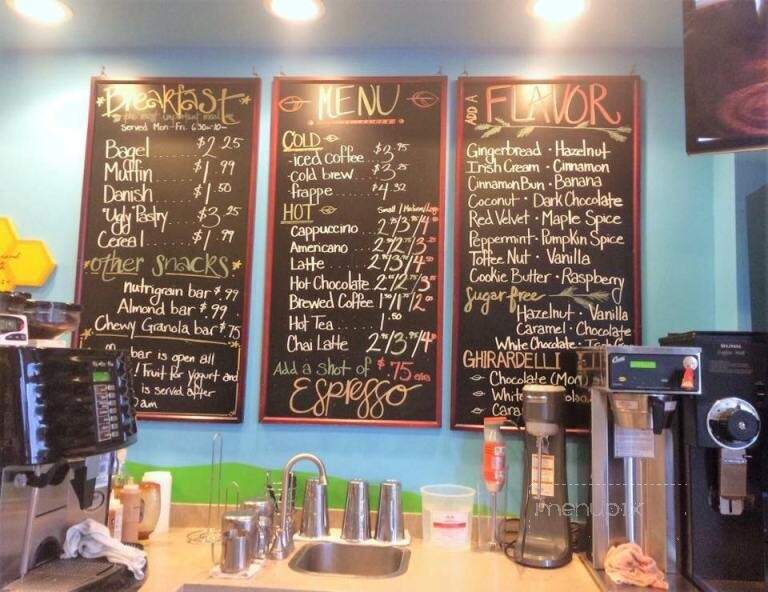 Breakfast
Served Mon-Fri 6:30-10
Bagel $2.25
Muffin $1.99
Danish $1.50
"Ugly" Pastry $3.25
Cereal $1.99
other snacks
nutrigrain bar $.99
Almond bar $.99
Chewy Granola bar $.75
bar is open all
! Fruit for yogurt and
is served after
am
MENU
COLD
iced coffee $3.95
cold brew $3.25
frappe $4.32
HOT
Small / Medium /
Cappuccino
Americano
Latte
Hot Chocolate
Brewed Coffee
Hot Tea 1.50
Chai Latte
Add a shot of $.75
Espresso
ADD A FLAVOR
Gingerbread · Hazelnut
Irish Cream · Cinnamon
Cinnamon Bun · Banana
Coconut · Dark Chocolate
Red Velvet · Maple Spice
Peppermint · Pumpkin Spice
Toffee Nut · Vanilla
Cookie Butter · Raspberry
sugar free
Hazelnut · Vanilla
Caramel · Chocolate
White Chocolate
GHIRARDELLI
Chocolate
White
Cara
BUNN
menupix